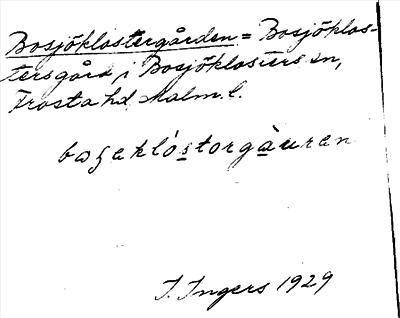 Bosjöklostergården = Bosjöklos-
tersgård i Bosjöklosters sn,
Frosta hd Malm. l.
boʒeklóstorgàuren
I. Ingers 1929